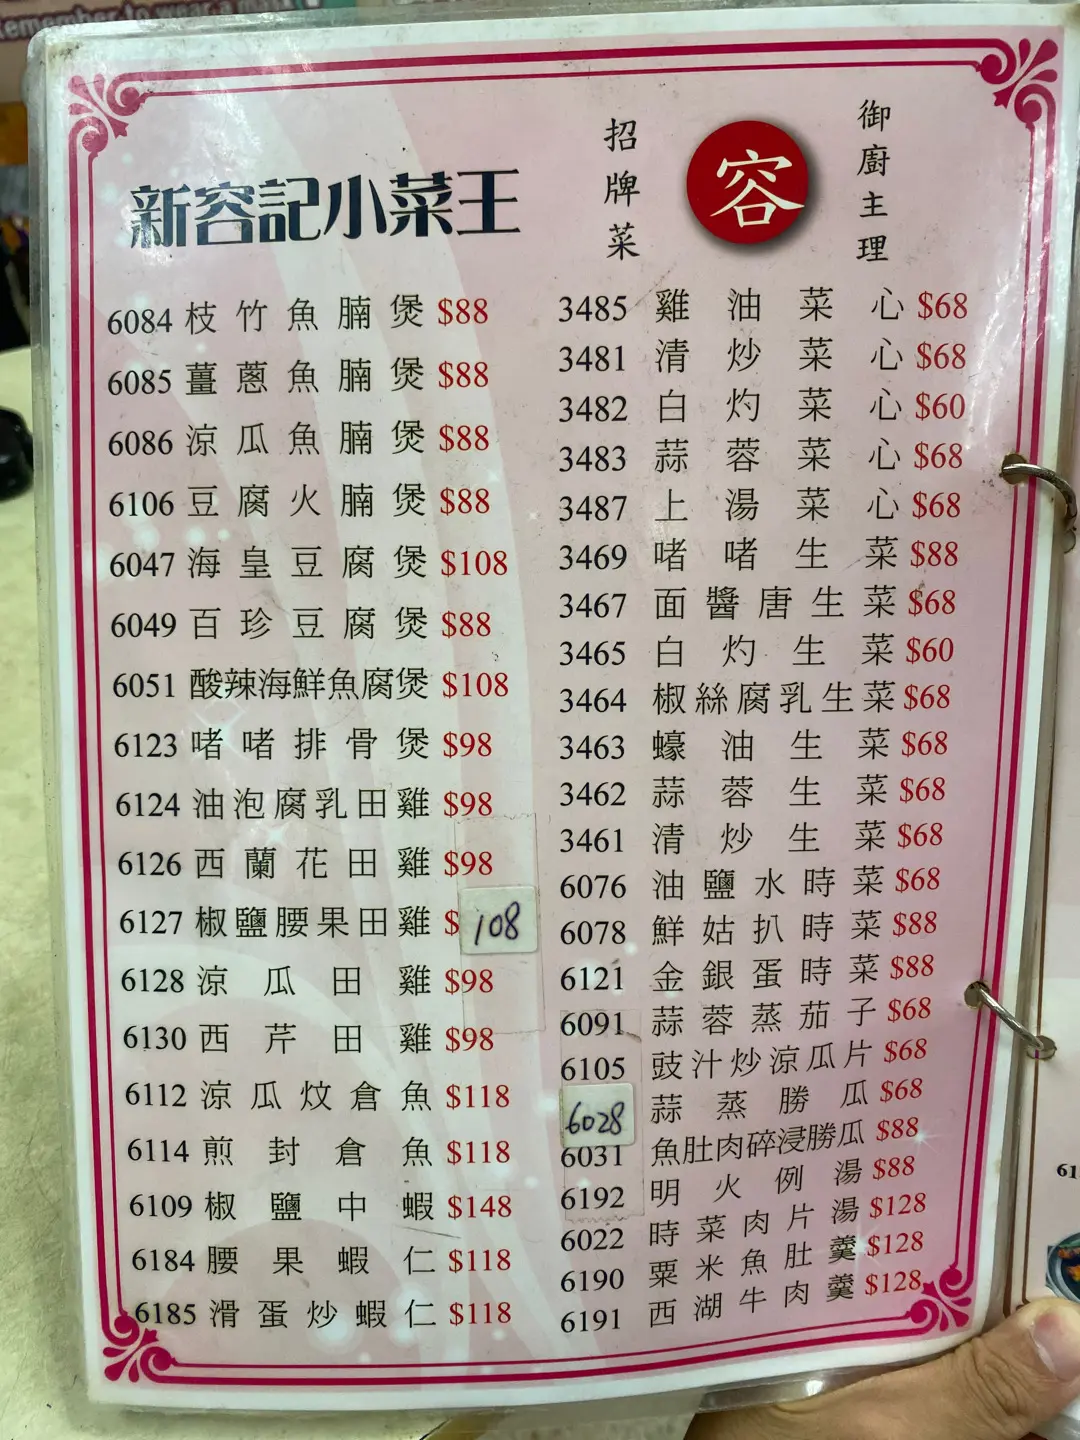 Remember to wear a mask
新容記小菜王
招牌菜
容
御廚主理
6084 枝竹魚腩煲 $88
6085 薑蔥魚腩煲 $88
6086 涼瓜魚腩煲 $88
6106 豆腐火腩煲 $88
6047 海皇豆腐煲 $108
6049 百珍豆腐煲 $88
6051 酸辣海鮮魚腐煲 $108
6123 啫啫排骨煲 $98
6124 油泡腐乳田雞 $98
6126 西蘭花田雞 $98
6127 椒鹽腰果田雞 $108
6128 涼瓜田雞 $98
6130 西芹田雞 $98
6112 涼瓜炆倉魚 $118
6114 煎封倉魚 $118
6109 椒鹽中蝦 $148
6184 腰果蝦仁 $118
6185 滑蛋炒蝦仁 $118
3485 雞油菜心 $68
3481 清炒菜心 $68
3482 白灼菜心 $60
3483 蒜蓉菜心 $68
3487 上湯菜心 $68
3469 啫啫生菜 $88
3467 面醬唐生菜 $68
3465 白灼生菜 $60
3464 椒絲腐乳生菜 $68
3463 蠔油生菜 $68
3462 蒜蓉生菜 $68
3461 清炒生菜 $68
6076 油鹽水時菜 $68
6078 鮮姑扒時菜 $88
6121 金銀蛋時菜 $88
6091 蒜蓉蒸茄子 $68
6105 豉汁炒涼瓜片 $68
6028 蒜蒸勝瓜 $68
6031 魚肚肉碎浸勝瓜 $88
6192 明火例湯 $88
6022 時菜肉片湯 $128
6190 粟米魚肚羹 $128
6191 西湖牛肉羹 $128
61